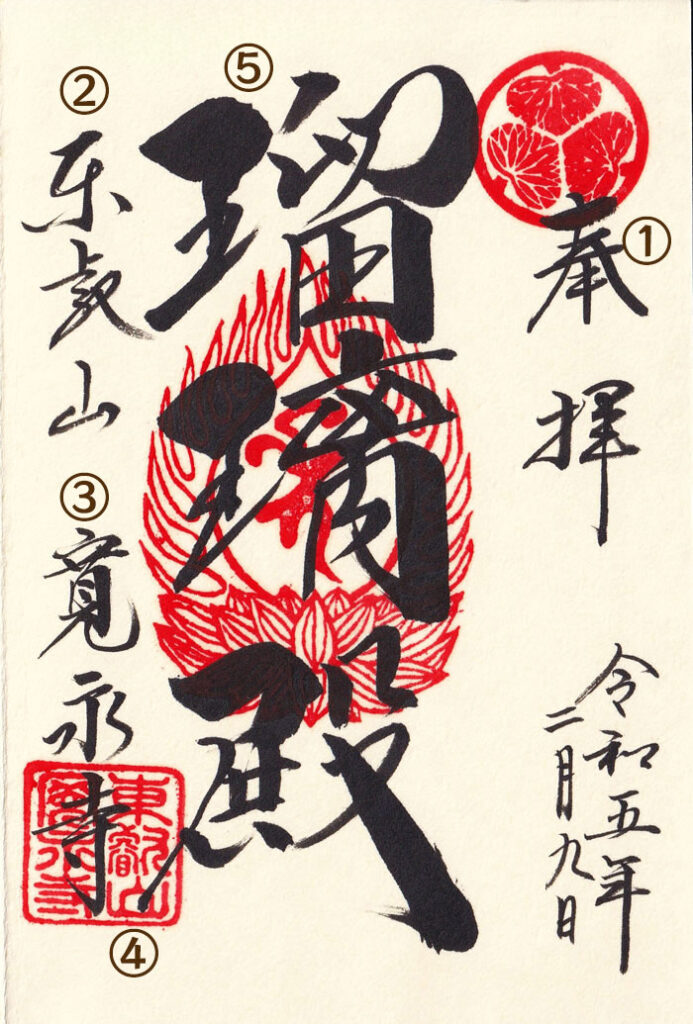 ①
奉拝
令和五年
二月九日
⑤
瑠璃殿
②
東叡山
③
寛永寺
④
東叡山
寛永寺